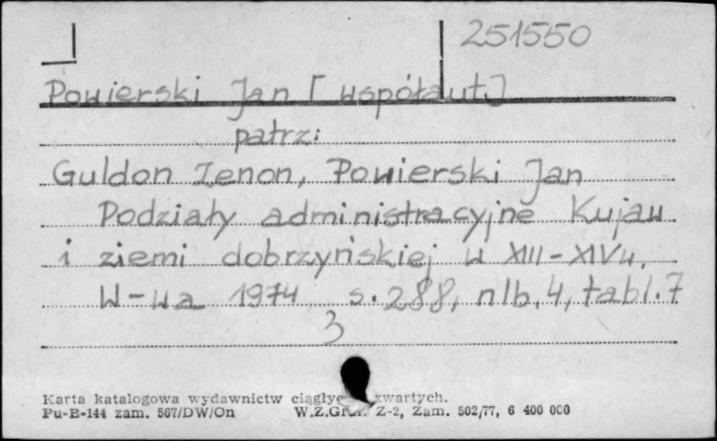 251550
Powierski Jan [współaut.]
patrz:
Guldon Zenon, Powierski Jan
Podziały administracyjne Kujaw
i ziemi dobrzyńskiej w XIII-XIVw.
W-wa 1974 s. 288, nlb. 4, tabl. 7
3
Karta katalogowa wydawnictw zwartych.
Pu-B-144 zam. 567/DW/On W.Z.Graf. Z-2, Zam. 502/77, 6 400 000